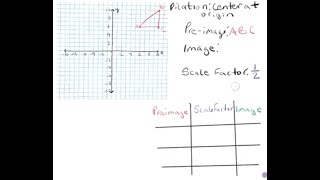 Dilation: Center at
origin
Pre-image: ABC
Image:
Scale Factor: 1/2
Preimage Scale Factor Image